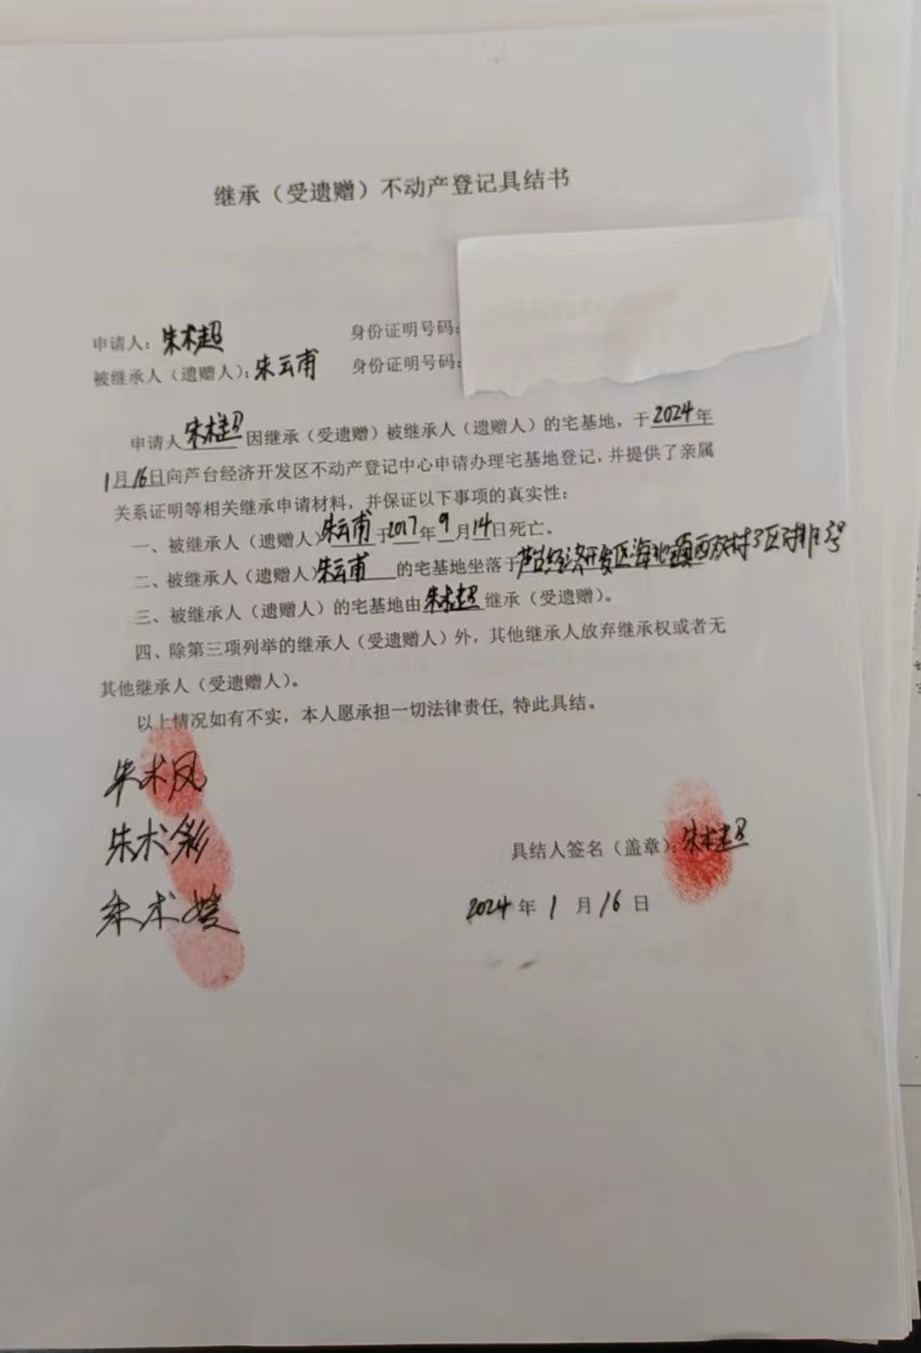 继承（受遗赠）不动产登记具结书
申请人：朱术超 身份证明号码：
被继承人（遗赠人）：朱云甫 身份证明号码：
申请人朱术超因继承（受遗赠）被继承人（遗赠人）的宅基地，于2024年
1月16日向芦台经济开发区不动产登记中心申请办理宅基地登记，并提供了亲属
关系证明等相关继承申请材料，并保证以下事项的真实性：
一、被继承人（遗赠人）朱云甫于2017年9月14日死亡。
二、被继承人（遗赠人）朱云甫的宅基地坐落于芦台经济开发区海北镇西 村3区 排 号
三、被继承人（遗赠人）的宅基地由朱术超继承（受遗赠）。
四、除第三项列举的继承人（受遗赠人）外，其他继承人放弃继承权或者无
其他继承人（受遗赠人）。
以上情况如有不实，本人愿承担一切法律责任，特此具结。
朱术凤
朱术彩
朱术
具结人签名（盖章）：朱术超
2024年1月16日